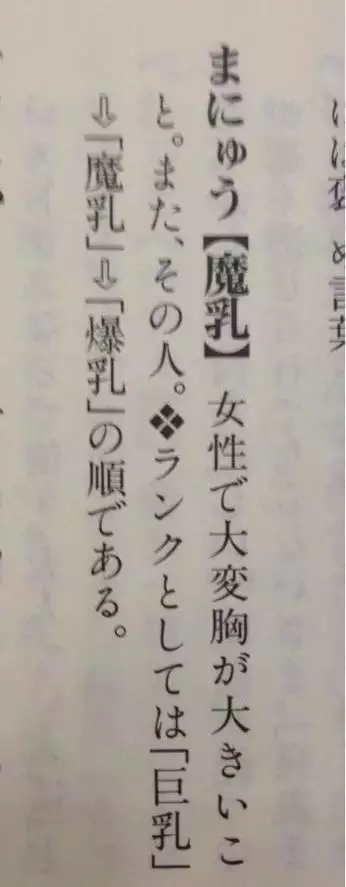 には褒め言葉
まにゅう【魔乳】 女性で大変胸が大きいこ
と。また、その人。❖ランクとしては「巨乳」
⇩「魔乳」⇩「爆乳」の順である。